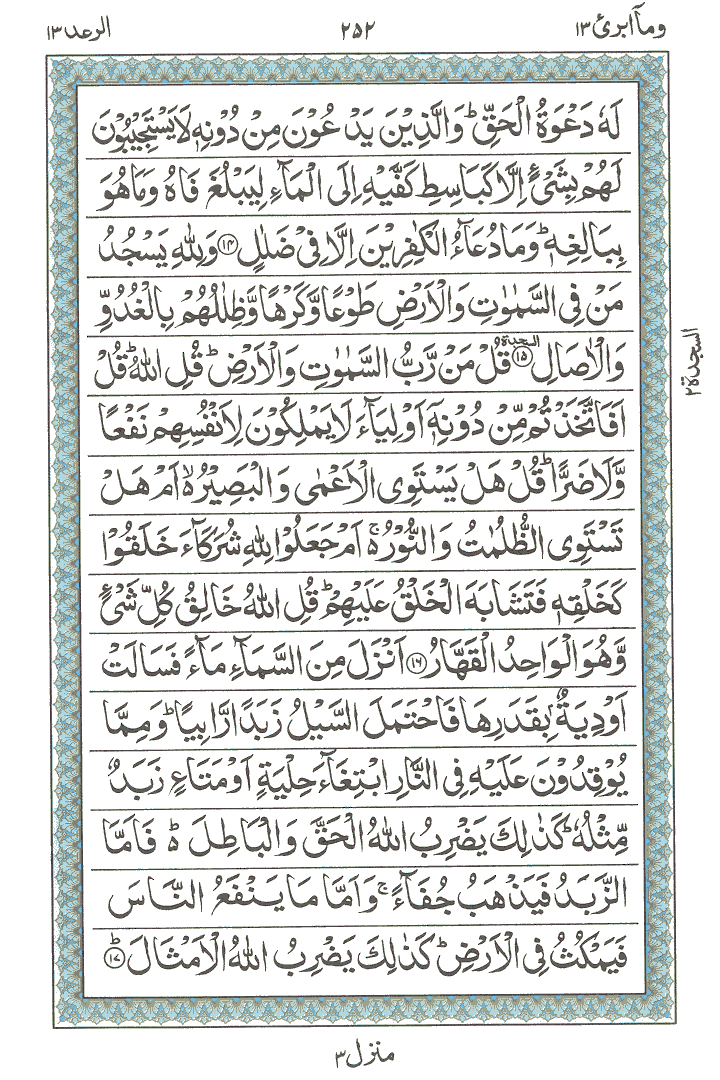 وما ابرئ ۱۳ ۲۵۲ الرعد ۱۳
لَهٗ دَعْوَةُ الْحَقِّ ؕ وَالَّذِيْنَ يَدْعُوْنَ مِنْ دُوْنِهٖ لَا يَسْتَجِيْبُوْنَ
لَهُمْ بِشَیْءٍ اِلَّا كَبَاسِطِ كَفَّيْهِ اِلَى الْمَآءِ لِيَبْلُغَ فَاهُ وَمَا هُوَ
بِبَالِغِهٖ ؕ وَمَا دُعَآءُ الْكٰفِرِيْنَ اِلَّا فِیْ ضَلٰلٍ ﴿۱۴﴾ وَلِلّٰهِ يَسْجُدُ
مَنْ فِی السَّمٰوٰتِ وَالْاَرْضِ طَوْعًا وَّكَرْهًا وَّظِلٰلُهُمْ بِالْغُدُوِّ
وَالْاٰصَالِ ﴿۱۵﴾ السجدة قُلْ مَنْ رَّبُّ السَّمٰوٰتِ وَالْاَرْضِ ؕ قُلِ اللّٰهُ ؕ قُلْ
السجدة ۲
اَفَاتَّخَذْتُمْ مِّنْ دُوْنِهٖۤ اَوْلِيَآءَ لَا يَمْلِكُوْنَ لِاَنْفُسِهِمْ نَفْعًا
وَّلَا ضَرًّا ؕ قُلْ هَلْ يَسْتَوِی الْاَعْمٰى وَالْبَصِيْرُ ۙ اَمْ هَلْ
تَسْتَوِی الظُّلُمٰتُ وَالنُّوْرُ ۚ اَمْ جَعَلُوْا لِلّٰهِ شُرَكَآءَ خَلَقُوْا
كَخَلْقِهٖ فَتَشَابَهَ الْخَلْقُ عَلَيْهِمْ ؕ قُلِ اللّٰهُ خَالِقُ كُلِّ شَیْءٍ
وَّهُوَ الْوَاحِدُ الْقَهَّارُ ﴿۱۶﴾ اَنْزَلَ مِنَ السَّمَآءِ مَآءً فَسَالَتْ
اَوْدِيَةٌۢ بِقَدَرِهَا فَاحْتَمَلَ السَّيْلُ زَبَدًا رَّابِيًا ؕ وَمِمَّا
يُوْقِدُوْنَ عَلَيْهِ فِی النَّارِ ابْتِغَآءَ حِلْيَةٍ اَوْ مَتَاعٍ زَبَدٌ
مِّثْلُهٗ ؕ كَذٰلِكَ يَضْرِبُ اللّٰهُ الْحَقَّ وَالْبَاطِلَ ؕ۬ فَاَمَّا
الزَّبَدُ فَيَذْهَبُ جُفَآءً ۚ وَاَمَّا مَا يَنْفَعُ النَّاسَ
فَيَمْكُثُ فِی الْاَرْضِ ؕ كَذٰلِكَ يَضْرِبُ اللّٰهُ الْاَمْثَالَ ؕ﴿۱۷﴾
منزل ۳